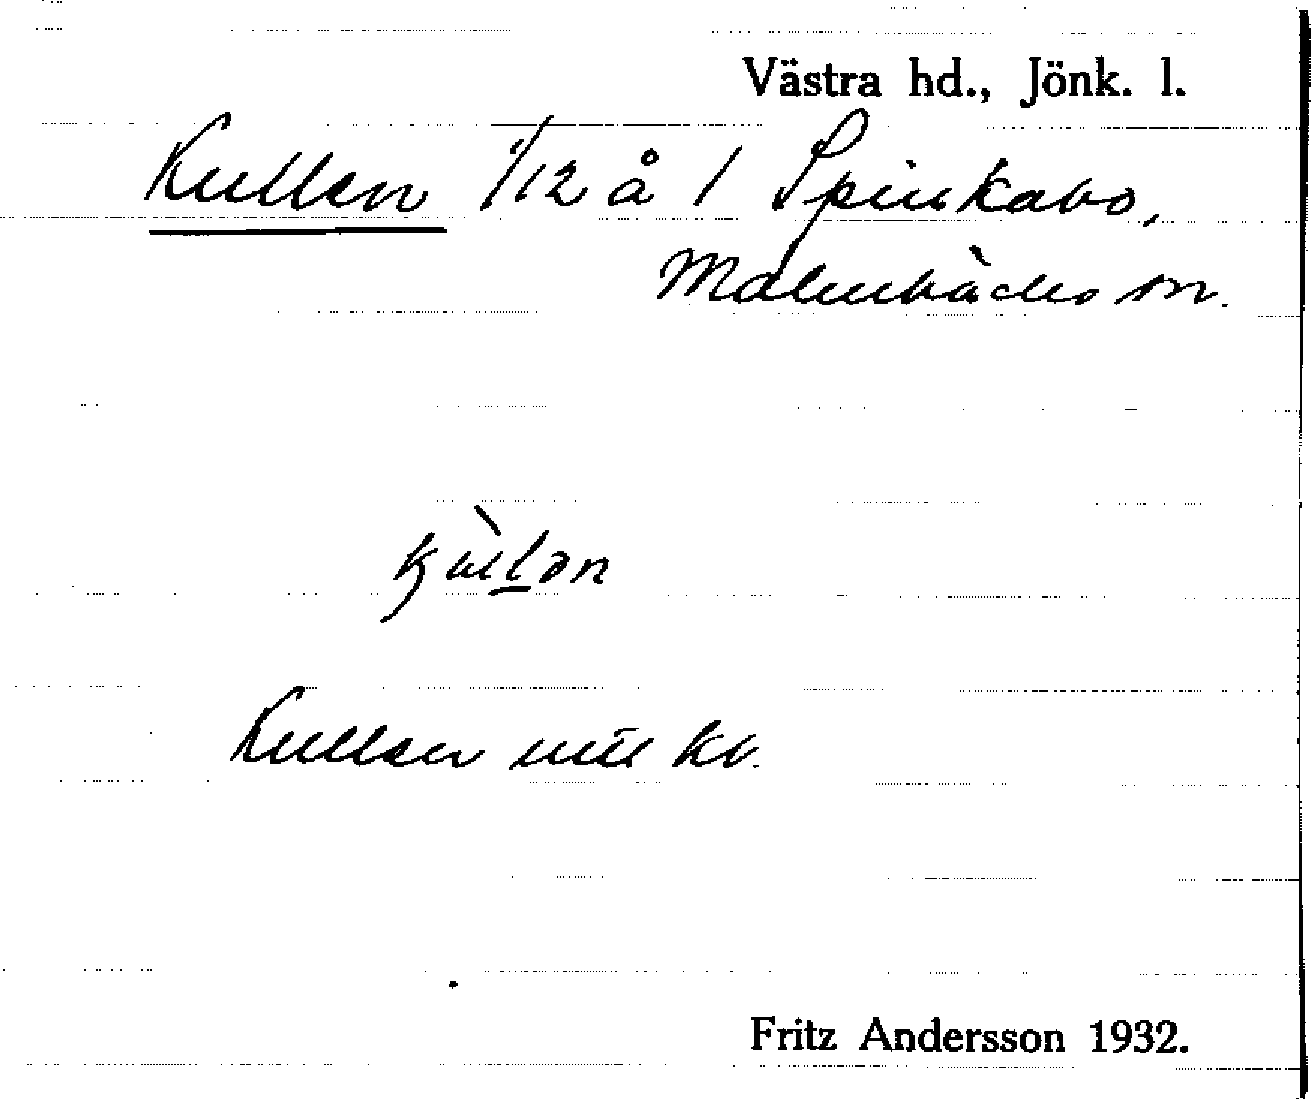 Västra hd., Jönk. l.
Kullen 1/12 å 1 Spinkabo,
Malmbäcks sn.
Kullen
Fritz Andersson 1932.